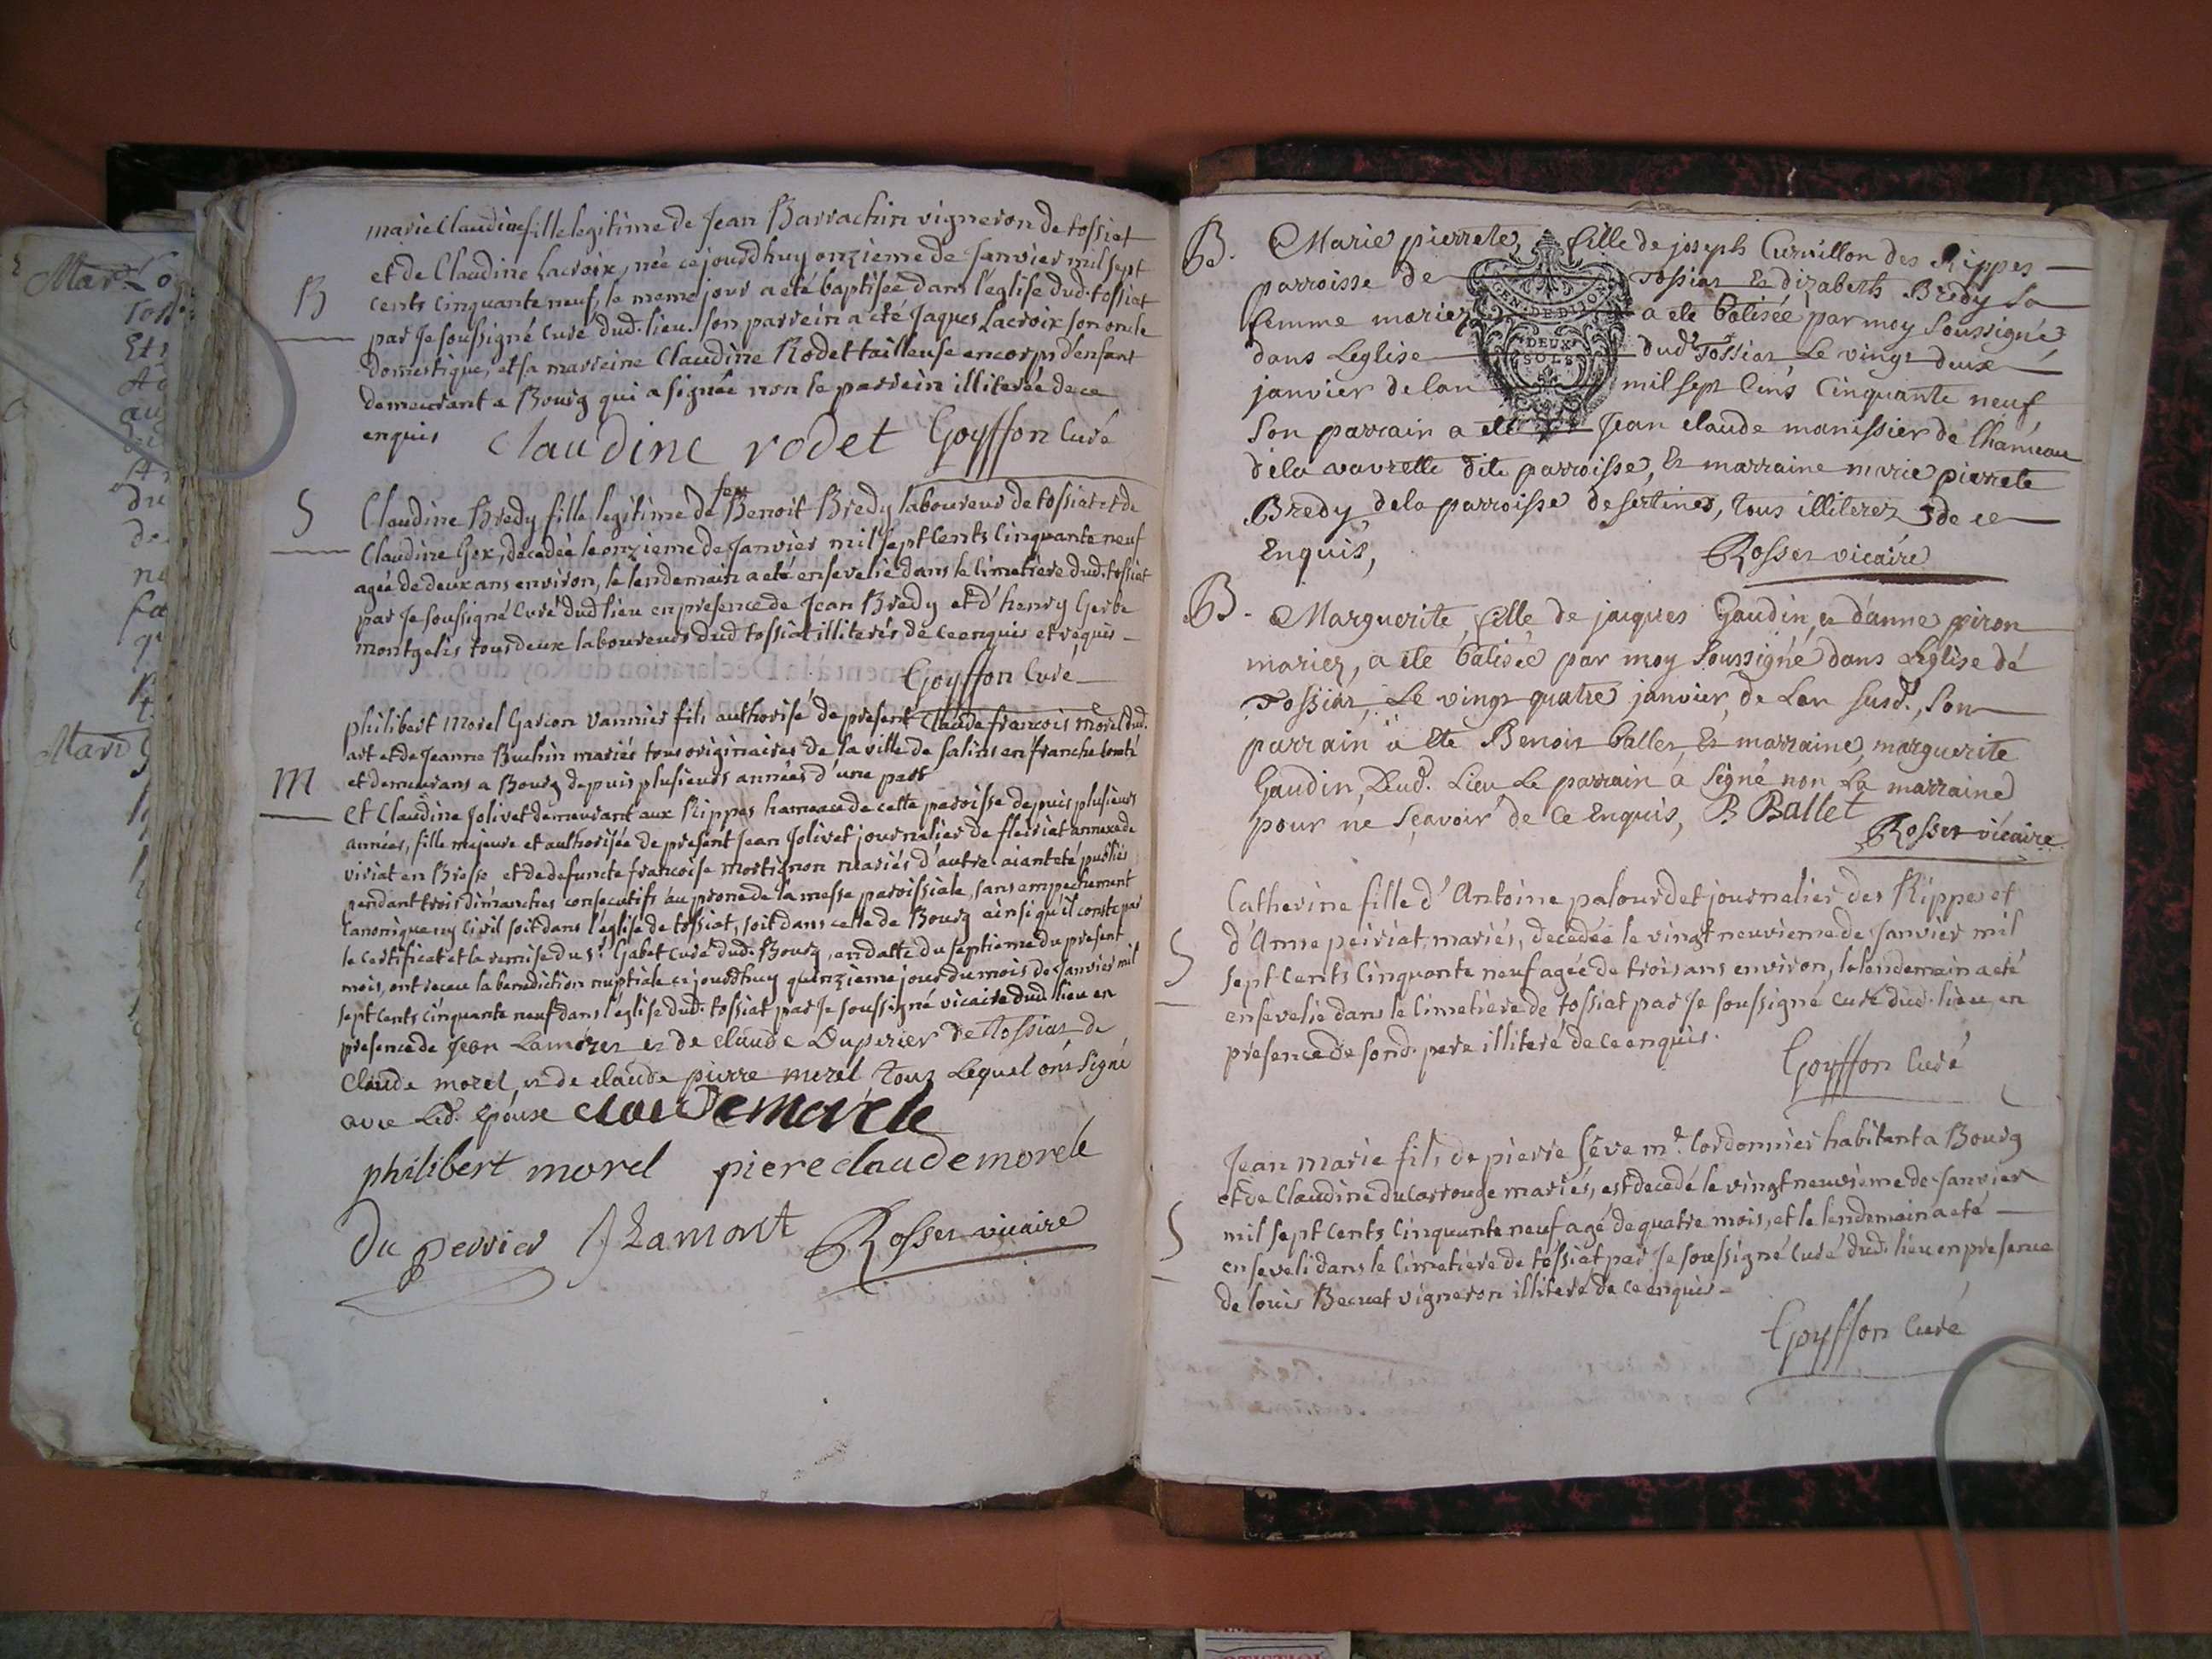 marie Claudine fille legitime de Jean Barrachin vigneron de tossiat
et de Claudine Lacroix, née cejourdhuy onzieme de Janvier mil sept
B
cents cinquante neuf, le meme jour a eté baptisée dans l'église dud. tossiat
par Je soussigné Curé dud. lieu. son parrein a été Jaques Lacroix son oncle
domestique, et sa marreine Claudine Rodet tailleuse en corps d'enfant
demeurant a Bourg qui a signée non le parrein illiterée de ce
enquis
Claudine rodet Goyffon Curé
S
Claudine Bredy fille legitime de feu Benoit Bredy laboureur de tossiat et de
Claudine Gex, decedée le onzieme de Janvier mil sept Cents Cinquante neuf
agée de deux ans environ, le lendemain a eté ensevelie dans le Cimetiere dud. tossiat
par Je soussigné Curé dud lieu en presence de Jean Bredy et d'henry Gerbe
montgelis tous deux laboureurs dud tossiat illiterés de ce enquis et requis
Goyffon Curé
philibert morel Garcon vannier fils authorisé de present Claude francois morel dud.
art et de Jeanne Buchin mariés tous originaires de la ville de Salins en franche Comté
M
et demeurans a Bourg depuis plusieurs années d'une part
et Claudine Jolivet demeurant aux Rippes hameau de cette paroisse depuis plusieurs
années, fille majeure et authorisée de present Jean Jolivet journalier de fleiriat annexe de
viriat en Bresse et de defuncte francoise mortignon mariés d'autre aiant eté publiés
pendant trois dimanches consecutifs au prone de la messe paroissiale, sans empechement
Canonique ny Civil soit dans l'église de tossiat, soit dans celle de Bourg ainsi qu'il conste par
le certificat et la remise du Sr. Gabet Curé dud. Bourg, en datte du septieme du present
mois, ont receu la benediction nuptiale cejourdhuy quinzieme jour du mois de Janvier mil
sept Cents cinquante neuf dans l'église dud. tossiat par Je soussigné vicaire dud. lieu en
presence de Jean Lamorez et de claude Duperier de Tossiat de
Claude morel, et de claude pierre morel, tous Lequel ont signé
avec Led. epouse claudemorele
philibert morel piereclaudemorele
du perrier J Lamort Rosset vicaire
B.
Marie pierrete, fille de joseph Curvillon des Rippes
GEN. DE DIJON
DEUX
SOLS
parroisse de Tossiat et dizabeth Bredy sa
femme mariez a ete batisée par moy soussigné
dans Leglise dud Tossiat Le vingt deux
janvier de lan mil sept Cens Cinquante neuf
Son parrain a ete Jean claude manissier de Lhameau
de la vavrette dite parroisse, et marraine marie pierrete
Bredy de la parroisse de sertines, tous illiterez de ce
Enquis,
Rosset vicaire
B.
Marguerite, fille de jacques Gaudin, et d'anne piron
mariez, a ete batisée par moy soussigné dans Leglise de
Tossiat, Le vingt quatre janvier, de Lan susd., son
parrain a Ete Benoit ballet, Et marraine, marguerite
Gaudin, Dud. Lieu Le parrain a signé non La marraine
pour ne sçavoir de Ce Enquis, B. Ballet
Rosset vicaire
Catherine fille d'Antoine palourdet journalier des Rippes et
S
d'Anne peiriat, mariés, decedée le vingt neuvieme de Janvier mil
sept Cents Cinquante neuf agée de trois ans environ, le lendemain a eté
ensevelie dans le Cimetiere de tossiat par Je soussigné curé dud. lieu en
presence de sond. pere illiteré de ce enquis.
Goyffon Curé
Jean marie fils de pierre seve me. Cordonnier habitant a Bourg
et de Claudine ducarrouge mariés, est decedé le vingt neuvieme de Janvier
S
mil sept Cents Cinquante neuf agé de quatre mois, et le lendemain a eté
enseveli dans le Cimetiere de tossiat par Je soussigné Curé dud. lieu en presence
de louis Becuet vigneron illiteré de ce enquis
Goyffon Curé